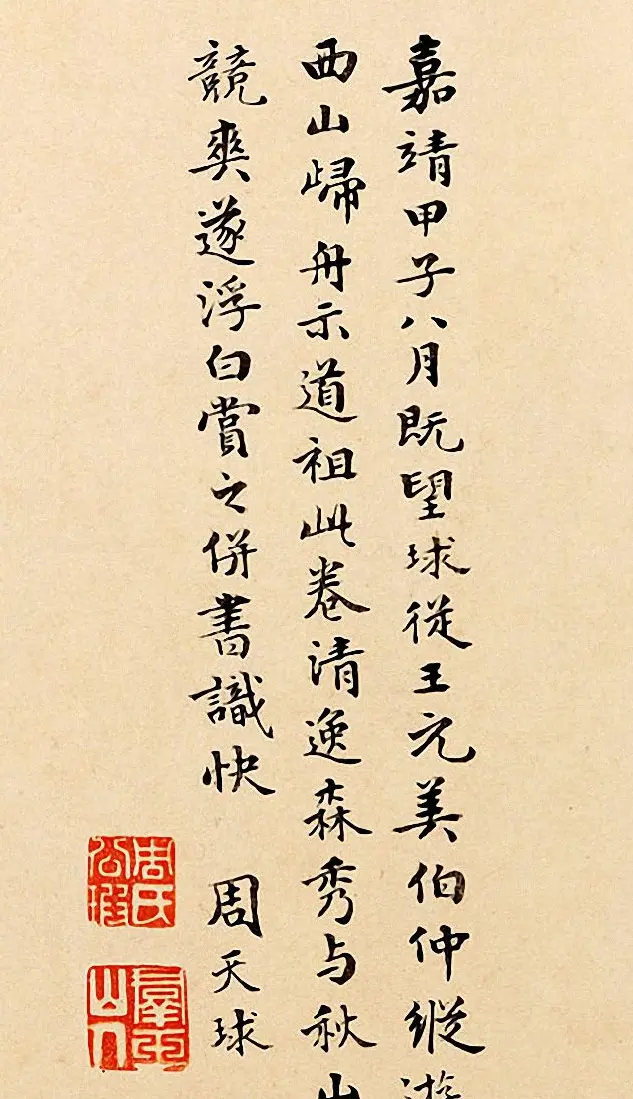 嘉靖甲子八月既望球從王元美伯仲縱游
西山歸舟示道祖此卷清逸森秀与秋山
競爽遂浮白賞之併書識快 周天球
周氏公瑕
羣玉山人